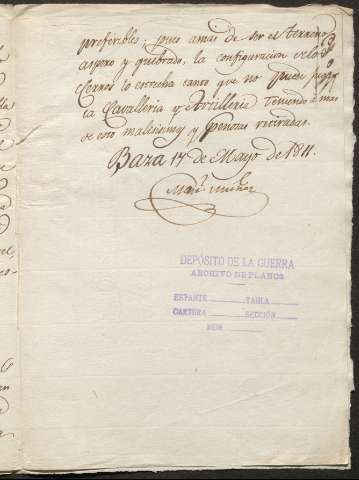 preferibles; pues amas de ser el terreno
aspero y quebrado, la configuracion de los
Cerros lo estrecha tanto que no puede
la Cavalleria y Artilleria teniendo a mas
de esto malisimas y penosas retiradas.
Baza 17 de Mayo de 1811.
Man.l Muñoz
DEPÓSITO DE LA GUERRA
ARCHIVO DE PLANOS
ESTANTE TABLA
CARTERA SECCIÓN
NÚM